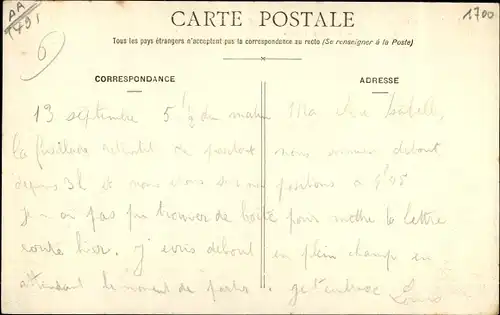 AA
1791
6
1700
CARTE POSTALE
Tous les pays étrangers n'acceptent pas la correspondance au recto (Se renseigner à la Poste)
CORRESPONDANCE
ADRESSE
13 septembre 5 1/2 du matin Ma chère
La fusillade retentit de partout nous sommes debout
depuis 3h et nous positions à
je n'ai pas pu trouver de boite pour mettre la lettre
écrite hier. j'écris debout en plein champ en
attendant le moment de partir. je t'embrasse Louis